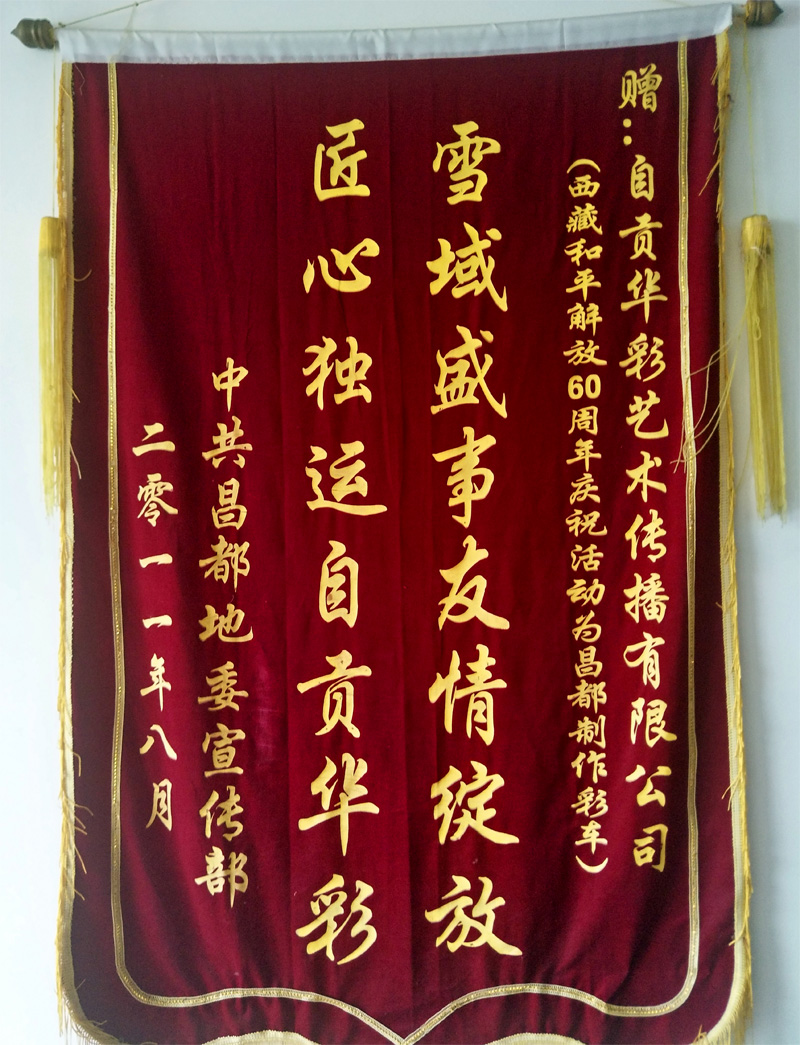 赠：自贡华彩艺术传播有限公司
（西藏和平解放60周年庆祝活动为昌都制作彩车）
雪域盛事友情绽放
匠心独运自贡华彩
中共昌都地委宣传部
二零一一年八月